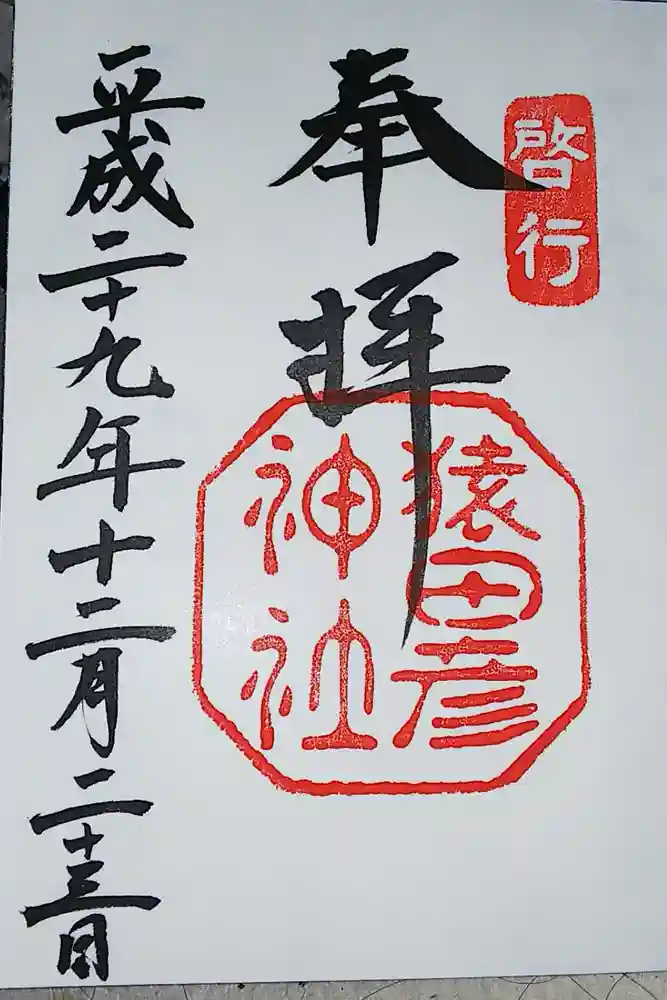 啓行
奉拝
猿田彦
神社
平成二十九年十二月二十三日